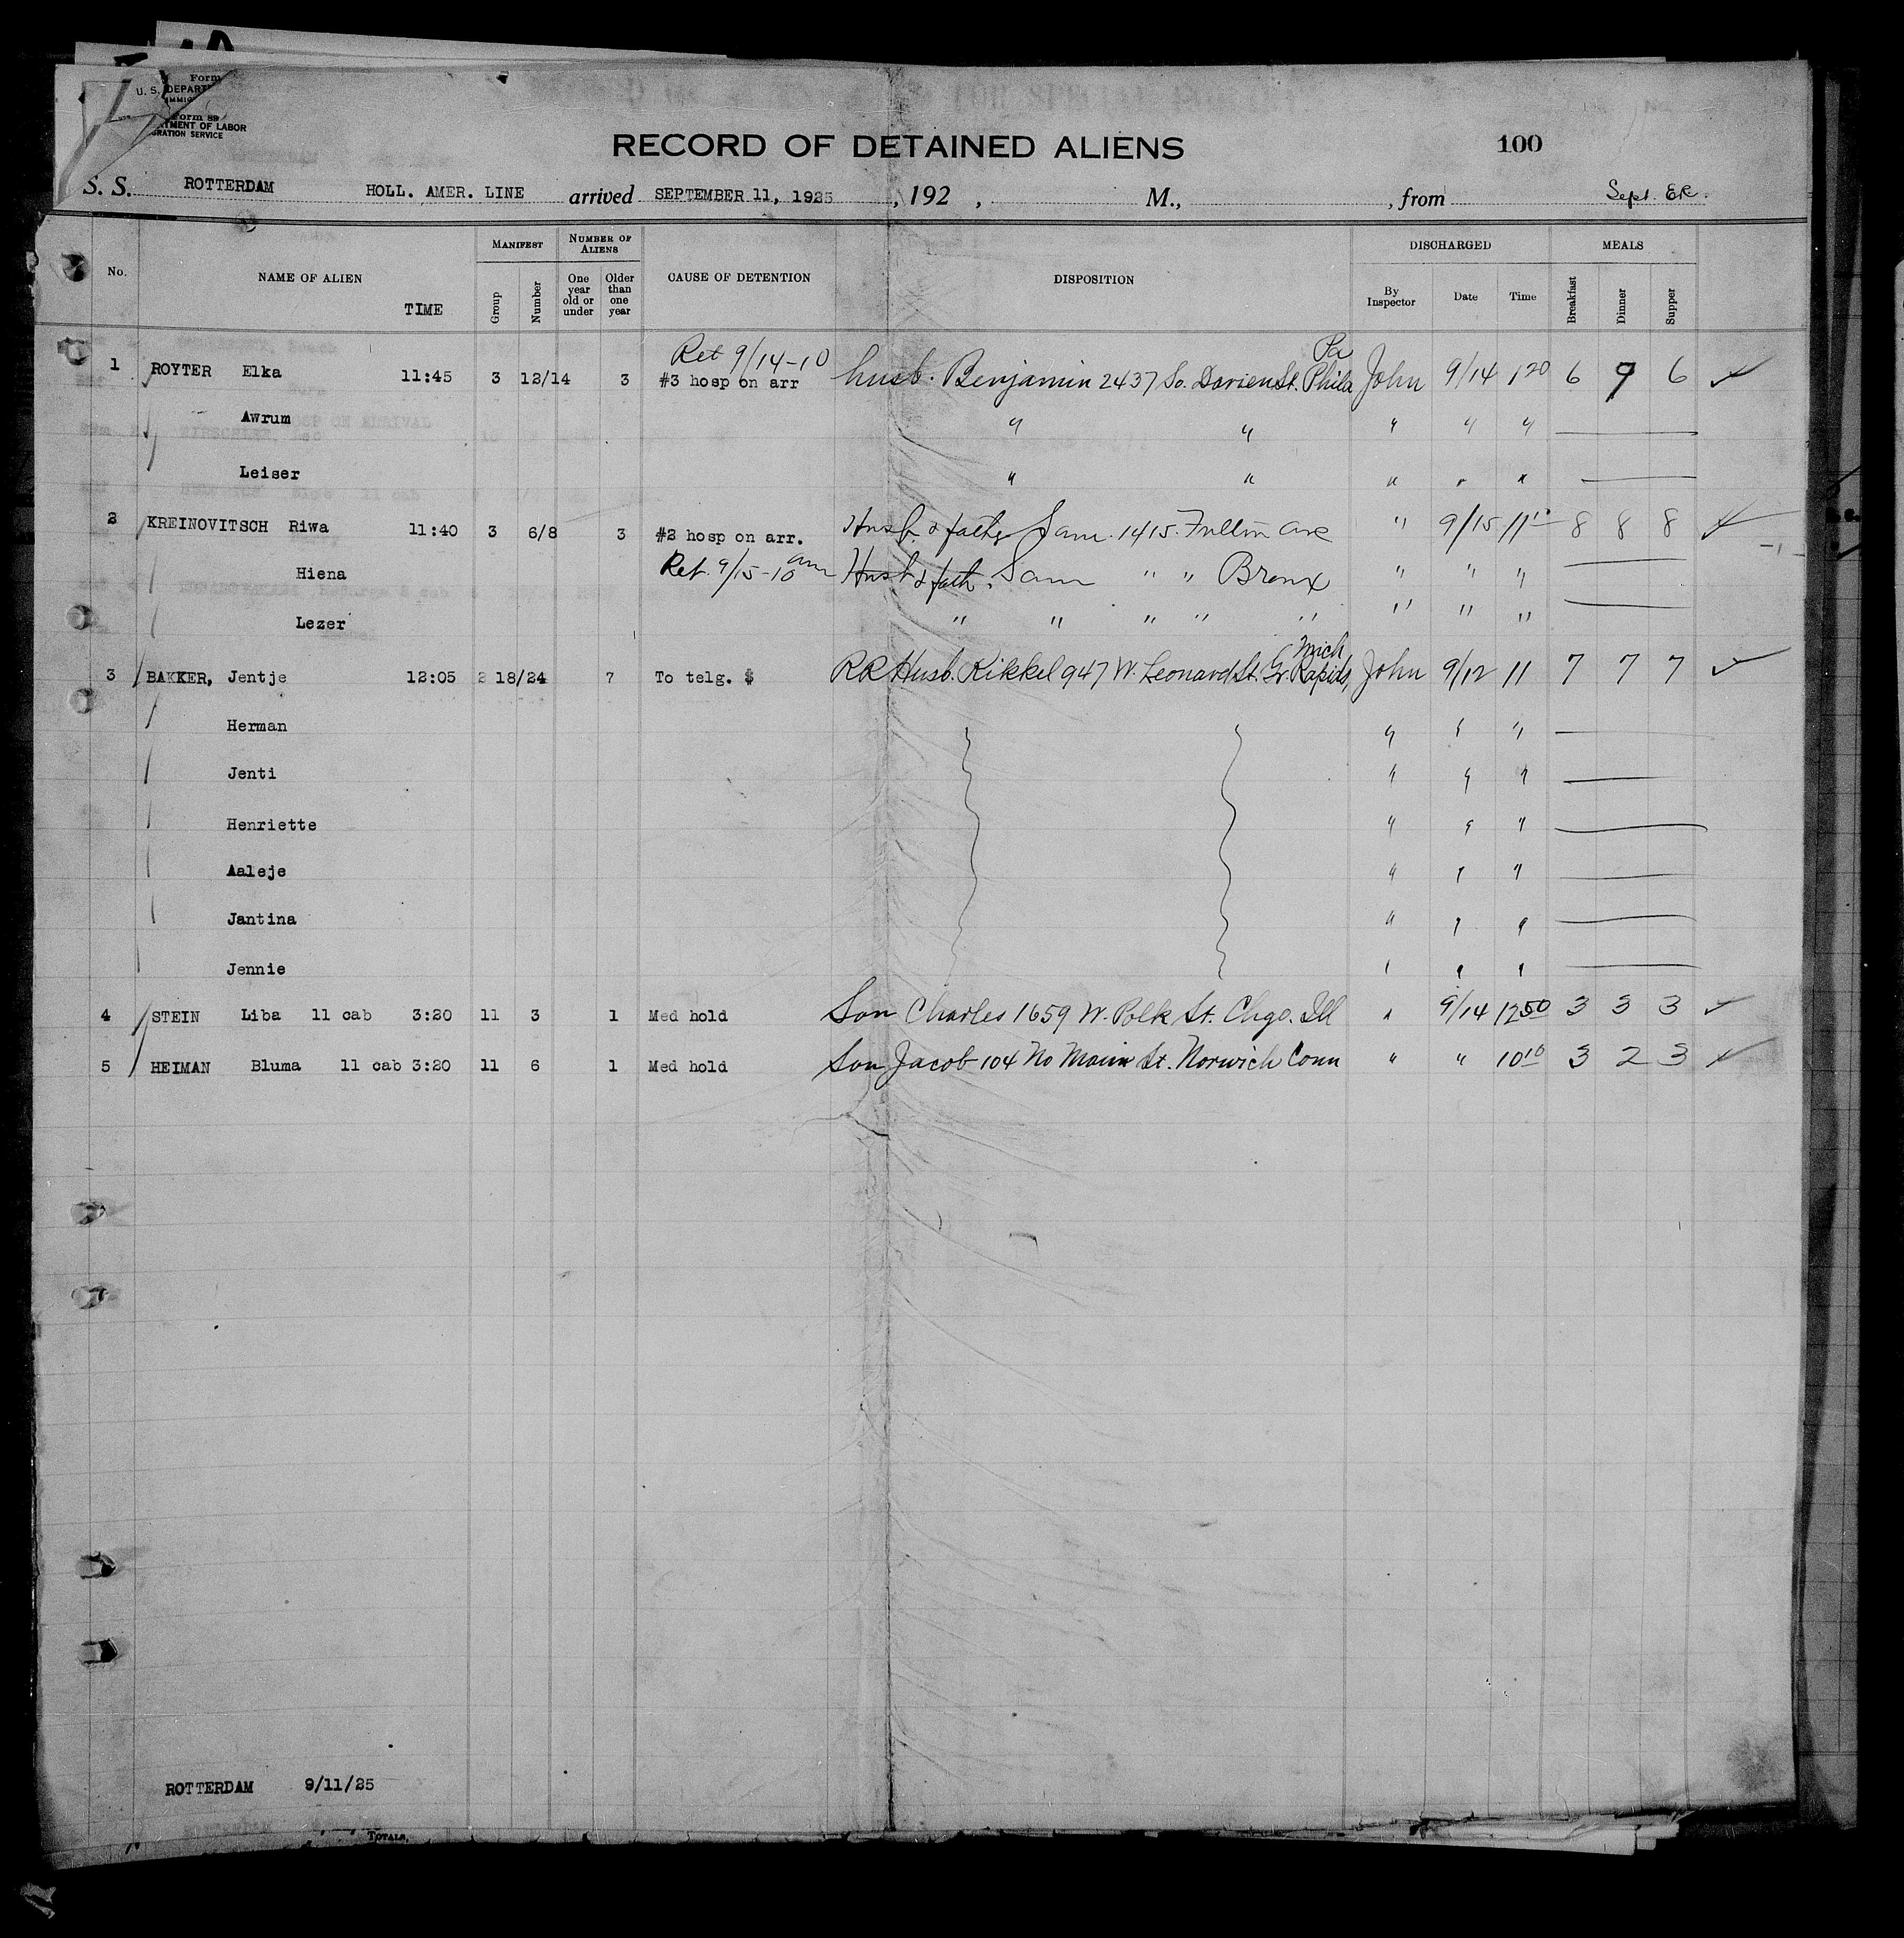 Form
U. S. DEPART
IMMIG
Form 89
TMENT OF LABOR
GRATION SERVICE
RECORD OF DETAINED ALIENS 100
S. S. ROTTERDAM HOLL. AMER. LINE arrived SEPTEMBER 11, 1925, 192 , M., , from Sept. ER.
No. NAME OF ALIEN TIME MANIFEST Group Number NUMBER OF ALIENS One year old or under Older than one year CAUSE OF DETENTION DISPOSITION DISCHARGED By Inspector Date Time MEALS Breakfast Dinner Supper
Ret 9/14-10 Pa
1 ROYTER Elka 11:45 3 12/14 3 #3 hosp on arr husb. Benjamin 2437 So. Darien St. Phila John 9/14 1 20 6 9 6 ✓
Awrum " " " " "
Leiser " " " " "
2 KREINOVITSCH Riwa 11:40 3 6/8 3 #2 hosp on arr. Husb. & father Sam. 1415. Fulton ave " 9/15 11 10 8 8 8 ✓
Hiena Ret. 9/15-10 am Husb & fath. Sam " " Bronx " " "
Lezer " " " " " " " "
Mich
3 BAKKER, Jentje 12:05 2 18/24 7 To telg. $ RR Husb. Rikkel 947 W. Leonard St. Gr. Rapids, John 9/12 11 7 7 7 ✓
Herman " " "
Jenti " " "
Henriette " " "
Aaleje " " "
Jantina " " "
Jennie " " "
4 STEIN Liba 11 cab 3:20 11 3 1 Med hold Son Charles 1659 W. Polk St. Chgo. Ill " 9/14 12 50 3 3 3 ✓
5 HEIMAN Bluma 11 cab 3:20 11 6 1 Med hold Son Jacob 104 No Main St. Norwich Conn " " 10 10 3 2 3 ✓
ROTTERDAM 9/11/25
TOTALS,